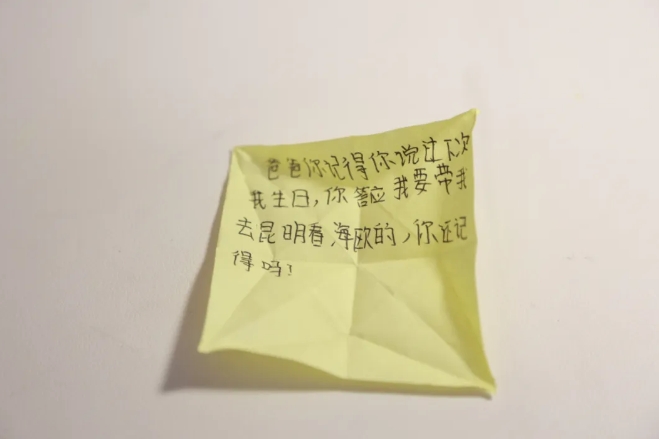 爸爸你记得你说过下次
我生日,你答应我要带我
去昆明看海欧的,你还记
得吗!